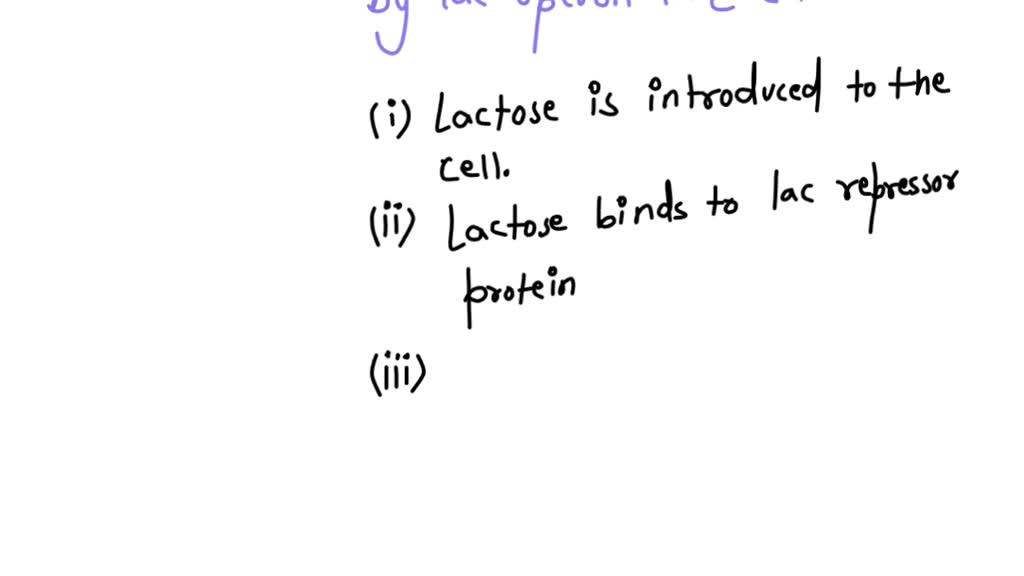 by lac
(i) Lactose is introduced to the
cell.
(ii) Lactose binds to lac repressor
protein
(iii)